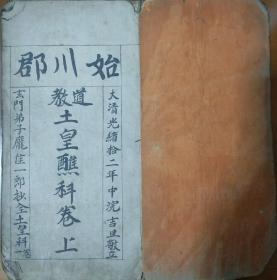 始川郡
大清光緒拾二年中浣吉旦敬立
道教
土皇醮科卷上
玄門弟子龐佳一郎抄全土皇科一